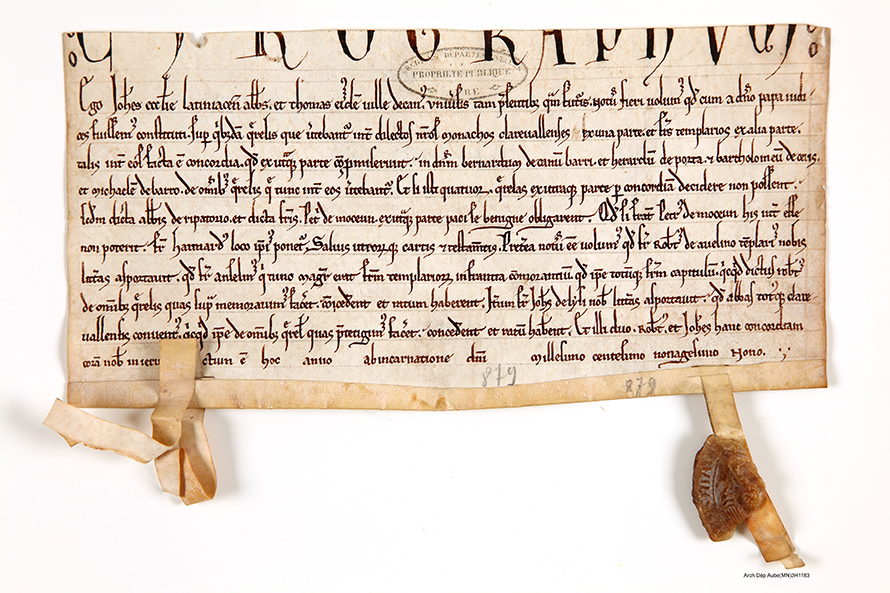 CYROGRAPHVM
ARCHIVES DÉPARTEMENTALES
PROPRIÉTÉ PUBLIQUE
Ego Joh̄es eccl̄ie latiniacen̄ abb̄s. et thomas eiusdē ville decan᷒. vniūsis tam p̄sentib; qm̄ futuris. Notū fieri volum᷒ qd̄ cum a dn̄o papa iudi-
ces fuissem᷒ constituti. sup̄ q̇busdā q̄relis que ūtebant᷒ int̄ dilectos nr̄os monachos clarevallenses ex una parte. et fr̄s templarios ex alia parte.
talis int̄ eos facta ē concordia. qd̄ ex utraq; parte cōpromiserunt. in dn̄m bernardum de et herardū de porta. et bartholomeū de
et michaelē de barro. de om̄ib; q̄relis q̄ tunc int̄ eos ūtebant᷒. Et si isti quatuor. q̄relas ex utraq; parte p̄ concordiā decidere non possent.
sc̄dm dicta abb̄is de ripatorio. et dicta fr̄is. Pet̄ de mocenun. ex utraq; parte pacisce benigne obligarent. Qd̄ si frat̄ Petr᷒ de mocenun his int̄ esse
non poterit. fr̄ haimard᷒ loco ip̄i᷒ ponet᷒. Saluis utrorumq; cartis et testam̄tis. Pret̄ea notū eē volum᷒ qd̄ fr̄ Rob̄t᷒ de avelino tēplari᷒ nobis
litt̄as asportavit. qd̄ fr̄ anselm᷒ q̇ tunc mag̅r erat fr̄m templariorū infrancia cōmorantiū. qd̄ ip̄e totūq; fr̄m capitulū. q̇cq̇d dictus rob̄t᷒
de om̄ib; q̄relis quas sup̄ memoravim᷒ facēt. cōcedent et ratum haberent. Itm̄ fr̄ Joh̄s de nob̄ litt̄as asportavit. qd̄ abbas tot᷒q; clare-
vallensis convent᷒. q̇cq̇d ip̄e de om̄ib; q̄rel̄ quas p̄tetigim᷒ facēt. concedent et ratū hab̄ent. Et illi duo. Rob̄t᷒. et Joh̄es hanc concordiam
corā nob̄ inieru ctum ē hoc anno abincarnatione dn̄i millesimo centesimo nonagesimo Nono.
879 879
Arch Dép Aube(MN)3H1183